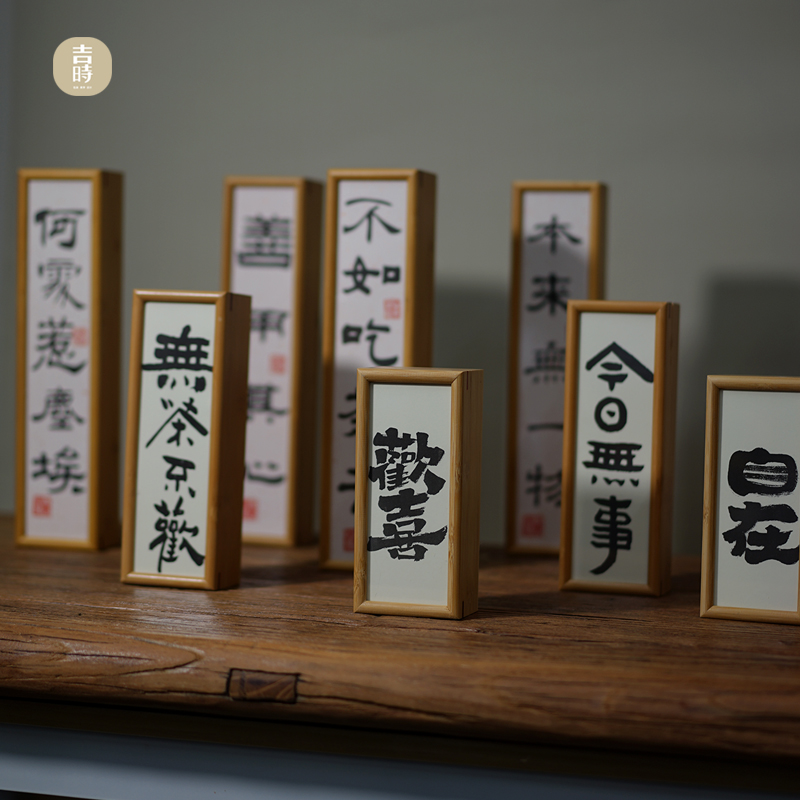 吉時
何處惹塵埃
無茶不歡
善用其心
不如吃
歡喜
本來無一物
今日無事
自在